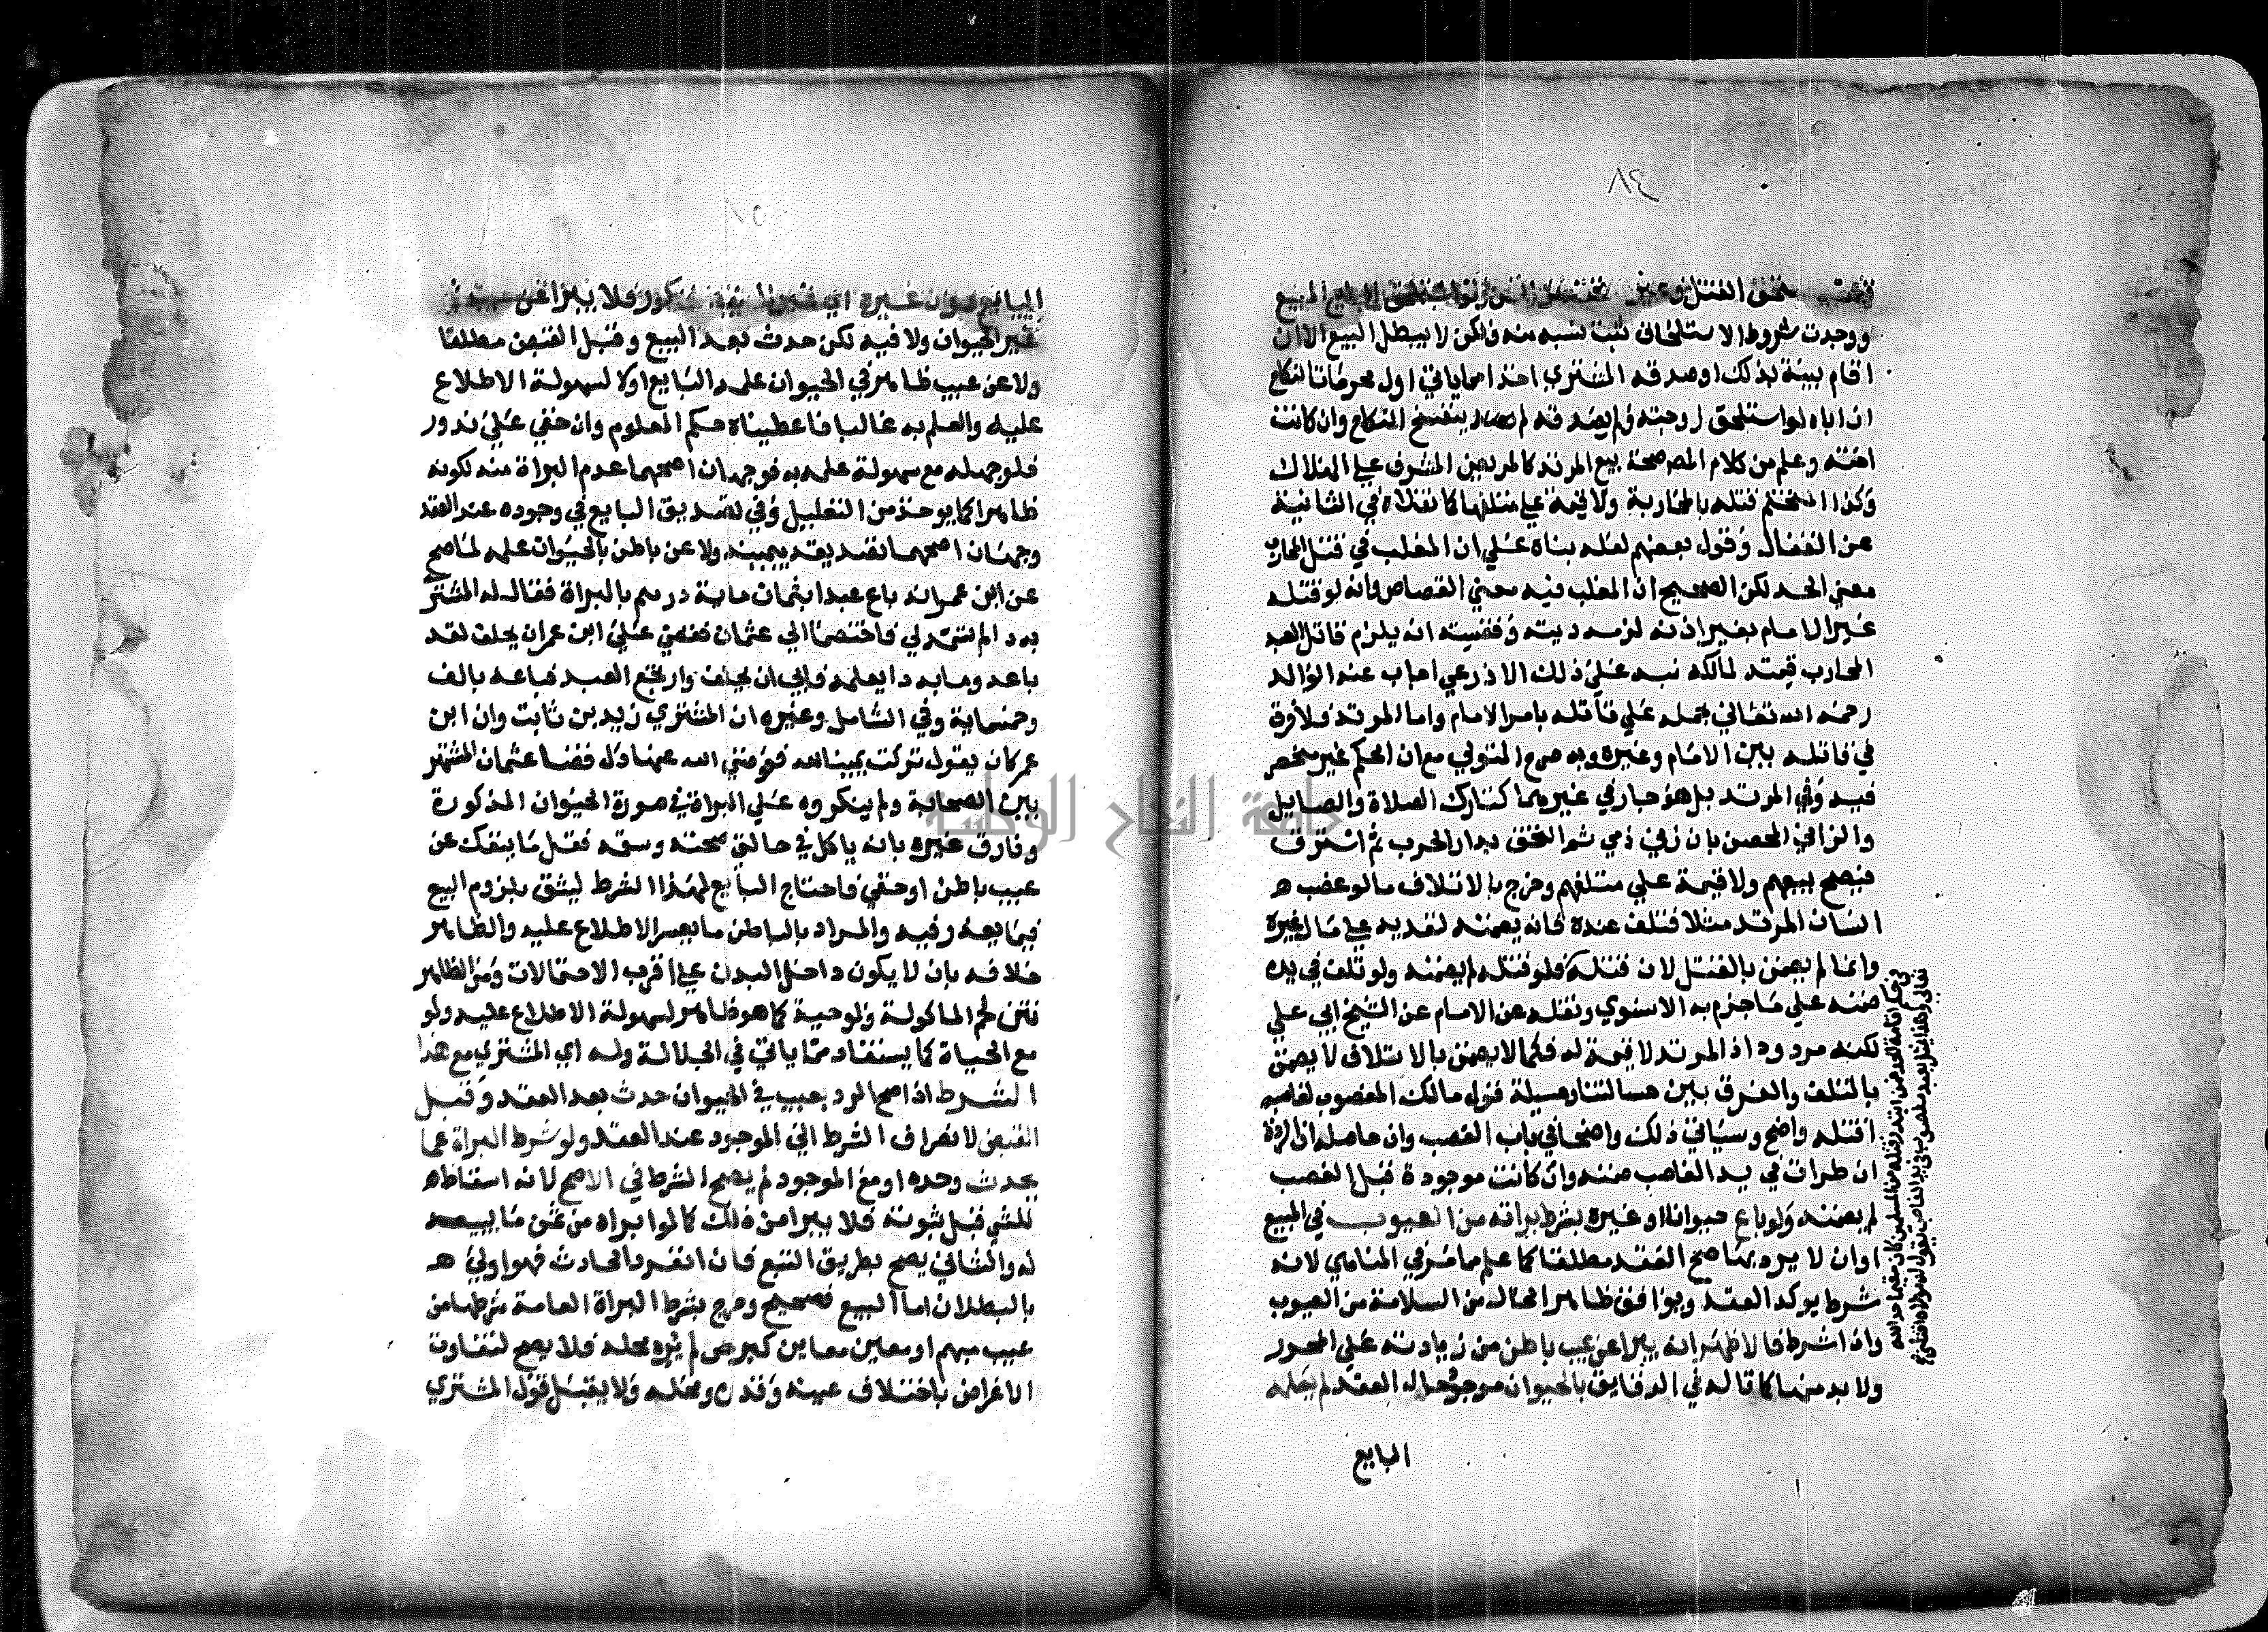 ٨٤
ووجدت شروط الاستلحاق ثبت نسبه منه ولكن لا يبطل البيع الا ان
اقام بينة بذلك او صدقه المشتري اخذا مما ياتي اول محرمات النكاح
ان اباه لو استلحق زوجته ولم يصدقه لم ينفسخ النكاح وان كانت
اخته وعلم من كلام المص صحة بيع المرتد كالمريض المشرف علي الهلاك
وكذا المتحتم قتله بالمحاربة ولا قيمة علي متلفها كما نقلاه في الثانية
عن القفال وقول بعضهم لعله بناه علي ان المغلب في قتل المحارب
معني الحد لكن الصحيح ان المغلب فيه معني القصاص وانه لو قتله
غير الامام بغير اذنه لزمه ديته وقضيته انه يلزم قاتل العبد
المحارب قيمته لمالكه نبه علي ذلك الاذرعي اجاب عنه الوالد
رحمه الله تعالي بحمله علي قاتله بامر الامام واما المرتد فلا فرق
في قاتله بين الامام وغيره وبه صرح المتولي مع ان الحكم غير منحصر
فيه وفي المرتد بل هو جار في غيرهما كتارك الصلاة والصايل
والزاني المحصن بان زني ذمي ثم التحق بدار الحرب ثم استرق
فيصح بيعهم ولا قيمة علي متلفهم وخرج بالاتلاف ما لو غصب ه
انسان المرتد مثلا فتلف عنده فانه يضمنه لتعديه علي مال غيره
وانما لم يضمن بالقتل لان قتله فلو قتله لم يضمنه ولو تلف في يده
ضمنه علي ما جزم به الاسنوي ونقله عن الامام عن الشيخ ابي علي
لكنه مردود اذ المرتد لا قيمة له فكما لا يضمن بالاتلاف لا يضمن
بالتلف والفرق بين هسا لتارهسيلة قول مالك المغصوب لغاصبه
اقتله واضح وسياتي ذلك واضحا في باب الغصب وان حاصله ان الردة
ان طرات في يد الغاصب ضمنه وان كانت موجودة قبل الغصب
لم يضمنه ولو باع حيوانا او غيره بشرط براته من العيوب في المبيع
او ان لا يرد بها صح العقد مطلقا كما علم مما مر في المناهي لانه
شرط يوكد العقد ويوافق ظاهر الحال من السلامة من العيوب
واذا شرط فالاظهر انه يبرا عن عيب باطن من زيادته علي المحرر
ولا بد منها كما قاله في الدقايق بالحيوان موجود حال العقد لم يعلمه
البايع
غير الحيوان ولا فيه لكن حدث بعد البيع وقبل القبض مطلقا
ولا عن عيب ظاهر في الحيوان علمه البايع او لا لسهولة الاطلاع
عليه والعلم به غالبا فاعطيناه حكم المعلوم وان خفي علي ندور
فلو جهله مع سهولة علمه به فوجهان اصحهما عدم البراة منه لكونه
ظاهرا كما يوخذ من التعليل وفي تصديق البايع في وجوده عند العقد
وجهان اصحهما تصديقه بيمينه ولا عن باطن بالحيوان علمه لما صح
عن ابن عمر انه باع عبدا بثمان ماية درهم بالبراة فقال له المشتر
به دا لم تسمه لي فاختصما الي عثمان فقضي علي ابن عمر ان يحلف لقد
باعه وما به دا يعلمه فابي ان يحلف وارتجع العبد فباعه بالف
وخمسماية وفي الشامل وغيره ان المشتري زيد بن ثابت وان ابن
عمر كان يقول تركت يمينا لله فعوضني الله عنها دل قضا عثمان المشتهر
بين الصحابة ولم ينكروه علي البراة في صورة الحيوان المذكورة
وفارق غيره بانه ياكل في حالتي صحته وسقمه فقل ما ينفك عن
عيب باطن او خفي فاحتاج البايع لهذا الشرط ليثق بلزوم البيع
فيما يعذر فيه والمراد بالباطن ما يعسر الاطلاع عليه والظاهر
خلافه بان لا يكون داخل البدن علي اقرب الاحتمالات ومن الظاهر
نتن لحم الماكولة ولو حية كما هو ظاهر لسهولة الاطلاع عليه ولو
مع الحياة كما يستفاد مما ياتي في الجلالة وله اي المشتري مع هذا
الشرط اذا صح الرد بعيب في الحيوان حدث بعد العقد وقبل
القبض لانصراف الشرط الي الموجود عند العقد ولو شرط البراة عما
يحدث وحده او مع الموجود لم يصح الشرط في الاصح لانه اسقاط ه
للشي قبل ثبوته فلا يبرا من ذلك كما لو ابراه من ثمن ما يبيعه
له والثاني يصح بطريق التبع فان انفرد الحادث فهو اولي ه
بالبطلان اما البيع فصحيح وخرج بشرط البراة العامة شرطها من
عيب مبهم او معين معاين كبرص لم يره محله فلا يصح لتفاوت
الاغراض باختلاف عينه وقدره ومحله ولا يقبل قول المشتري
جامعة النجاح الوطنية